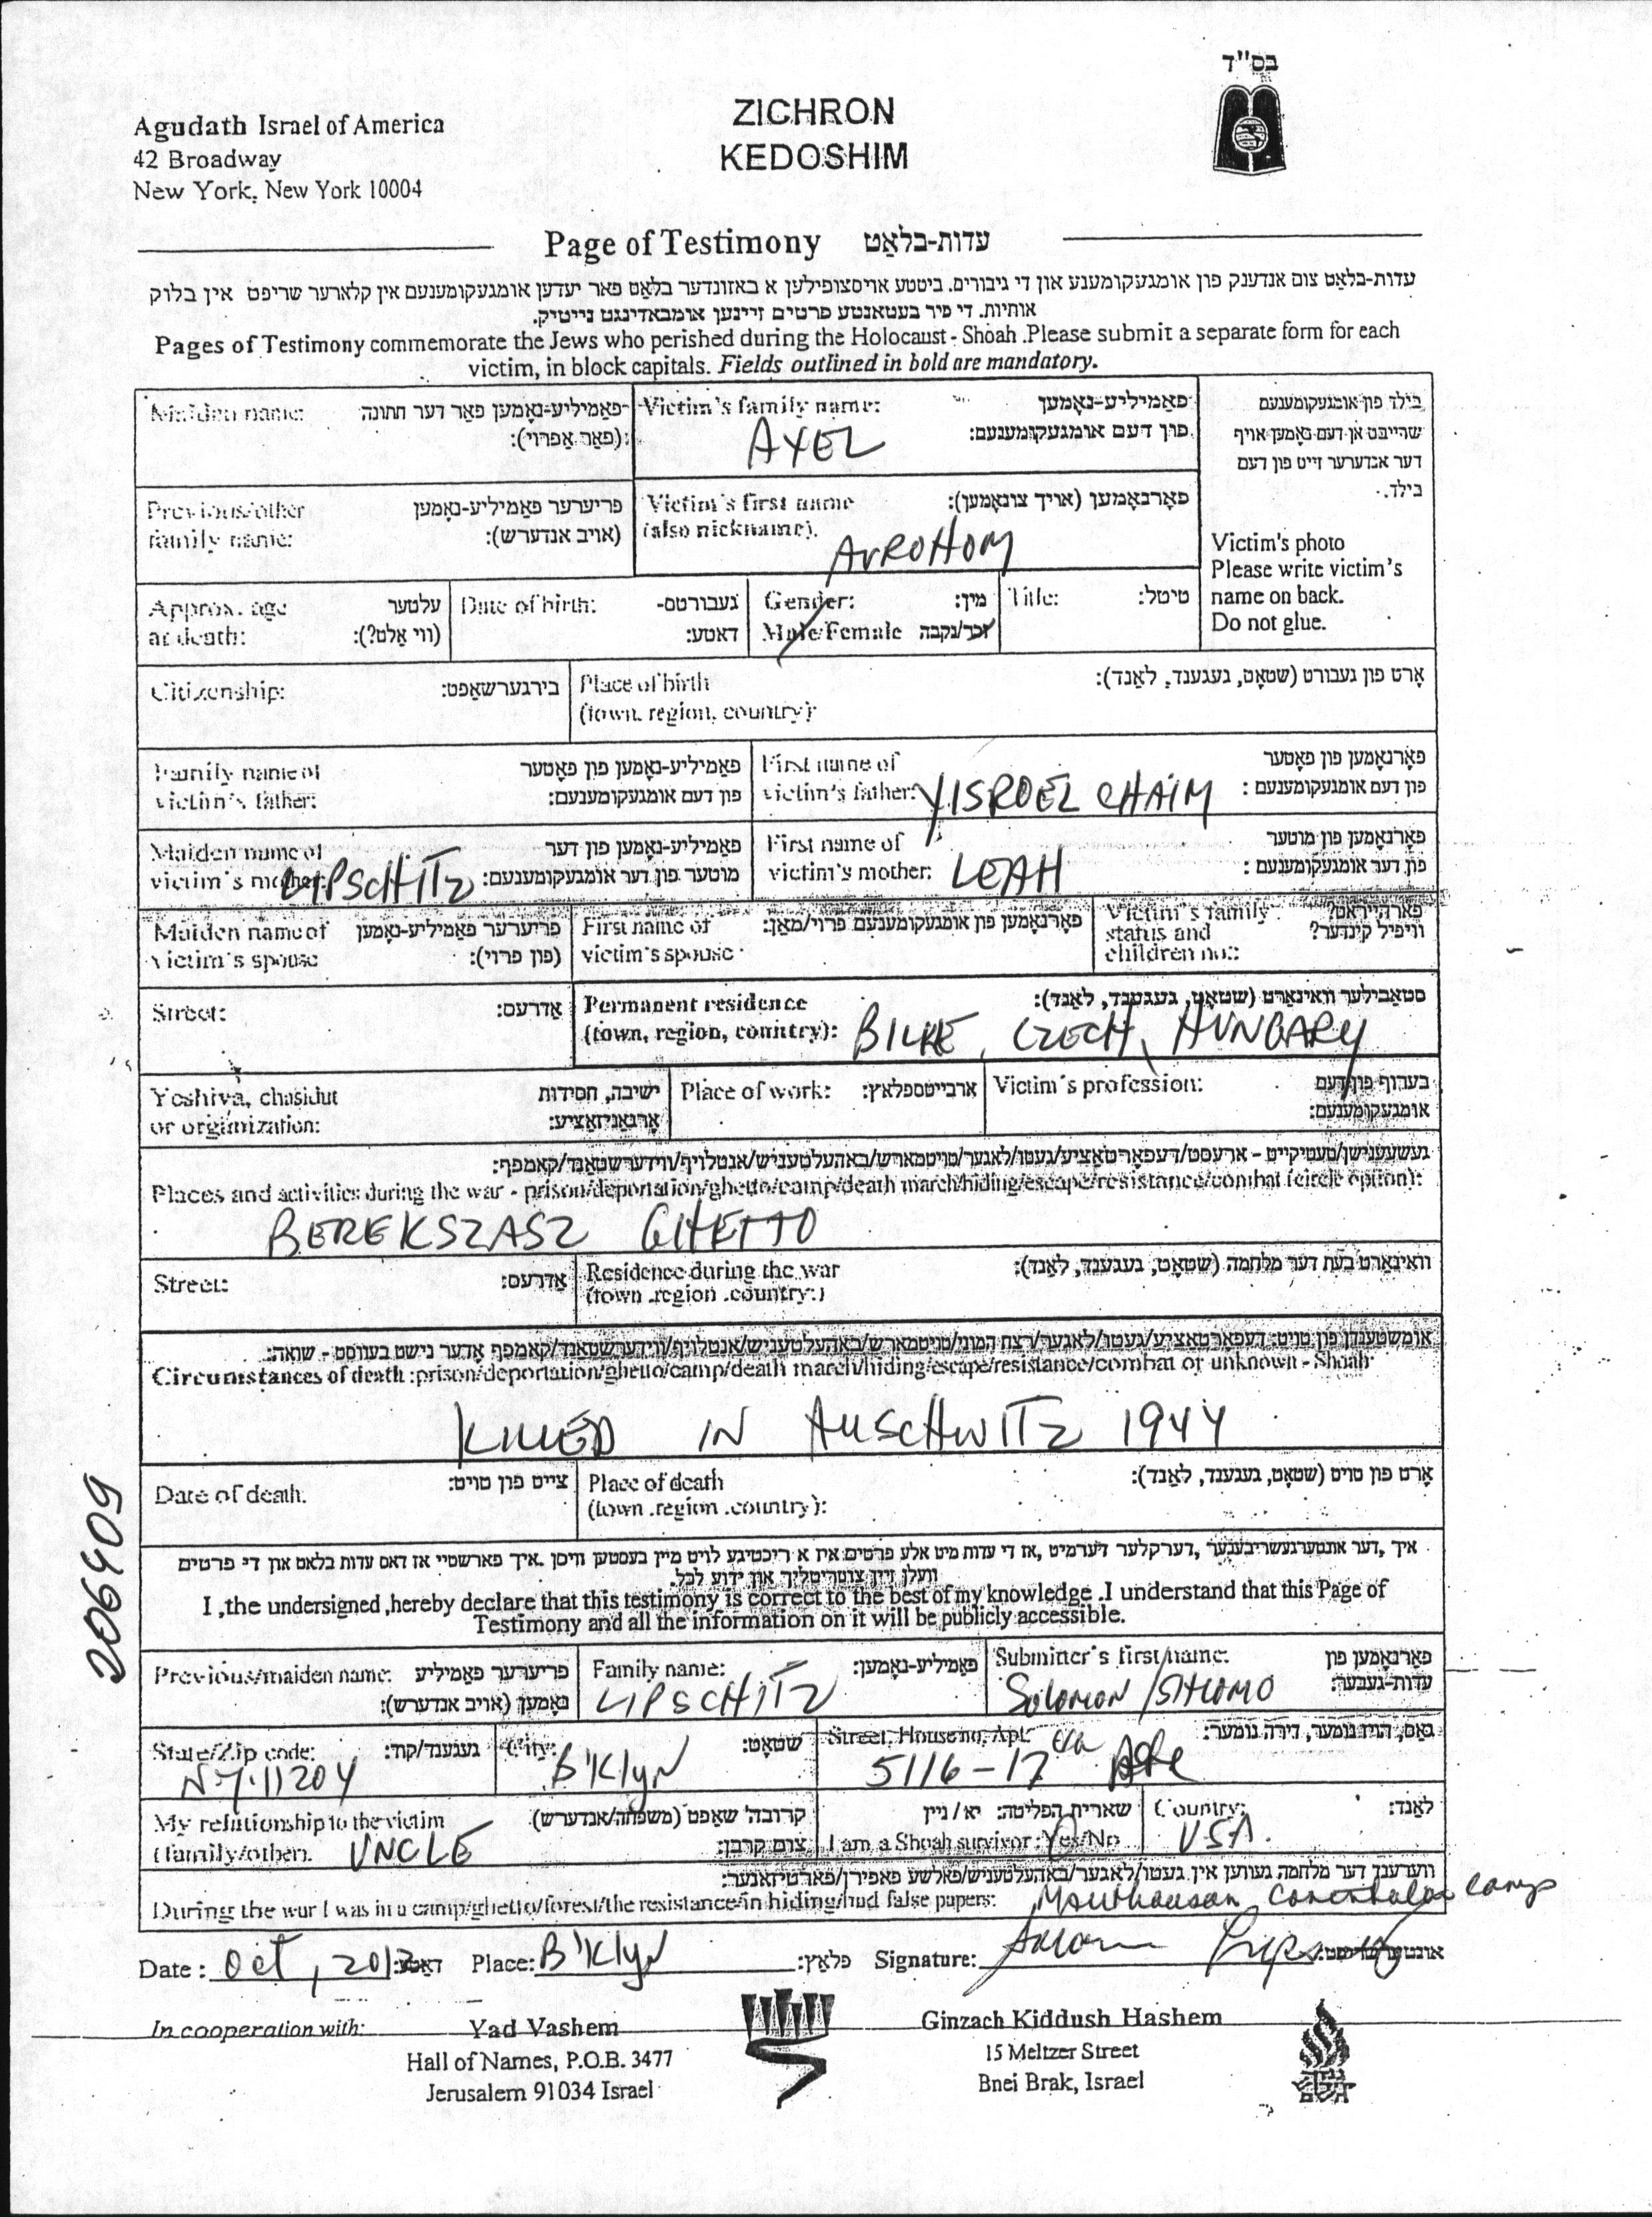 בס"ד
Agudath Israel of America
42 Broadway
New York, New York 10004
ZICHRON
KEDOSHIM
Page of Testimony עדות-בלאַט
עדות-בלאַט צום אנדענק פון אומגעקומענע און די גיבורים. ביטטע אויסצופילען א באזונדער בלאַט פאר יעדען אומגעקומענעם אין קלארער שריפט אין בלוק
אותיות. די פיר בעטאנטע פרטים זיינען אומבאדינגט נייטיק.
Pages of Testimony commemorate the Jews who perished during the Holocaust - Shoah .Please submit a separate form for each
victim, in block capitals. Fields outlined in bold are mandatory.
Maiden name: פאַמיליע-נאָמען פאַר דער חתונה
(פאַר אַפרוי):
Victim's family name: פאַמיליע-נאָמען
פון דעם אומגעקומענעם:
AXEL
בילד פון אומגעקומענעם
שרייבט אן דעם נאָמען אויף
דער אנדערער זייט פון דעם
בילד.
Victim's photo
Please write victim's
name on back.
Do not glue.
Previous/other
family name:
פריערער פאַמיליע-נאָמען
(אויב אנדערש):
Victim's first name
(also nickname).
פאָרנאָמען (אויך צונאָמען):
AVROHOM
Approx. age
at death:
עלטער
(ווי אַלט?):
Date of birth: געבורטס-
דאַטע:
Gender: מין:
Male/Female זכר/נקבה
Title: טיטל:
Citizenship: בירגערשאַפט:
Place of birth
(town, region, country):
אָרט פון געבורט (שטאָט, געגענד, לאַנד):
Family name of
victim's father:
פאַמיליע-נאָמען פון פאָטער
פון דעם אומגעקומענעם:
First name of
victim's father:
YISROEL CHAIM
פאָרנאָמען פון פאָטער
פון דעם אומגעקומענעם :
Maiden name of
victim's mother:
LIPSCHITZ
פאַמיליע-נאָמען פון דער
מוטער פון דער אומגעקומענעם:
First name of
victim's mother: LEAH
פאָרנאָמען פון מוטער
פון דער אומגעקומענעם :
Maiden name of
victim's spouse
פריערער פאַמיליע-נאָמען
(פון פרוי):
First name of
victim's spouse
פאָרנאָמען פון אומגעקומענעם פרוי/מאַן:
Victim's family
status and
children no.:
פארהייראט?
וויפיל קינדער?
Street: אַדרעס:
Permanent residence
(town, region, country):
סטאַבילער וואוינאָרט (שטאָט, געגענד, לאַנד):
BILKE, CZECH, HUNGARY
Yeshiva, chasidut
or organization:
ישיבה, חסידות
אָרגאַניזאַציע:
Place of work: ארבייטספלאץ:
Victim's profession: בערוף פון דעם
אומגעקומענעם:
געשעענישן/טעטיקייט - ארעסט/דעפּאָרטאַציע/געטו/לאגער/טויטמארש/באהעלטעניש/אנטלויף/ווידערשטאַנד/קאמפף:
Places and activities during the war - prison/deportation/ghetto/camp/death march/hiding/escape/resistance/combat (circle option):
BEREKSZASZ GHETTO
Street: אַדרעס:
Residence during the war
(town .region .country:)
וואוינאָרט בעת דער מלחמה (שטאָט, געגענד, לאַנד):
אומשטענדן פון טויט: דעפּאָרטאַציע/געטו/לאגער/רצח המוני/טויטמארש/באהעלטעניש/אנטלויף/ווידערשטאַנד/קאמפף אָדער נישט בעוואוסט - שואה:
Circumstances of death :prison/deportation/ghetto/camp/death march/hiding/escape/resistance/combat or unknown - Shoah:
KILLED IN AUSCHWITZ 1944
Date of death. צייט פון טויט:
Place of death
(town .region .country):
אָרט פון טויט (שטאָט, געגענד, לאַנד):
איך ,דער אונטערגעשריבענער ,דערקלער דערמיט ,אז די עדות מיט אלע פרטים איז א ריכטיגע לויט מיין בעסטען וויסן .איך פארשטיי אז דאס עדות בלאט און די פרטים
וועלן זיין צוטריטליך און ידוע לכל.
I ,the undersigned ,hereby declare that this testimony is correct to the best of my knowledge .I understand that this Page of
Testimony and all the information on it will be publicly accessible.
206409
Previous/maiden name: פריערער פאַמיליע
נאָמען (אויב אנדערש):
Family name: פאַמיליע-נאָמען:
LIPSCHITZ
Submitter's first name: פאָרנאָמען פון
עדות-געבער:
Solomon /SHLOMO
State/Zip code: געגענד/קוד:
N.Y. 11204
City: שטאָט:
B'klyn
Street, House no, Apt. גאַס, הויז נומער, דירה נומער:
5116-17 Ave
My relationship to the victim
(family/other).
קרובה' שאַפט (משפחה/אנדערש)
צום קרבן:
UNCLE
שארית הפליטה: יא / ניין
I am a Shoah survivor :Yes/No
Country: לאַנד:
USA.
ווערענד דער מלחמה געווען אין געטו/לאגער/באהעלטעניש/פאלשע פאפירן/פארטיזאנער:
During the war I was in a camp/ghetto/forest/the resistance/in hiding/had false papers: Mauthausen camp
Date : Oct, 2012 דאַטע: Place: B'klyn פלאַץ: Signature:
In cooperation with:
Yad Vashem
Hall of Names, P.O.B. 3477
Jerusalem 91034 Israel
Ginzach Kiddush Hashem
15 Meltzer Street
Bnei Brak, Israel